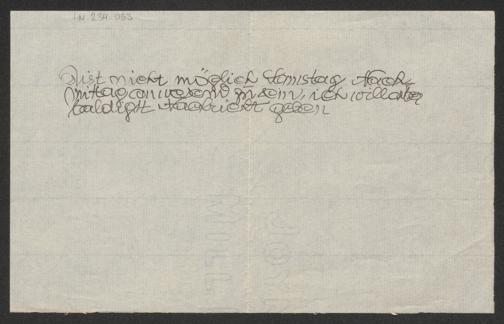 I.N. 234.063
Ist nicht möglich Samstag Nach-
mittag anwesend zu sein, ich will aber
baldigst Nachricht geben